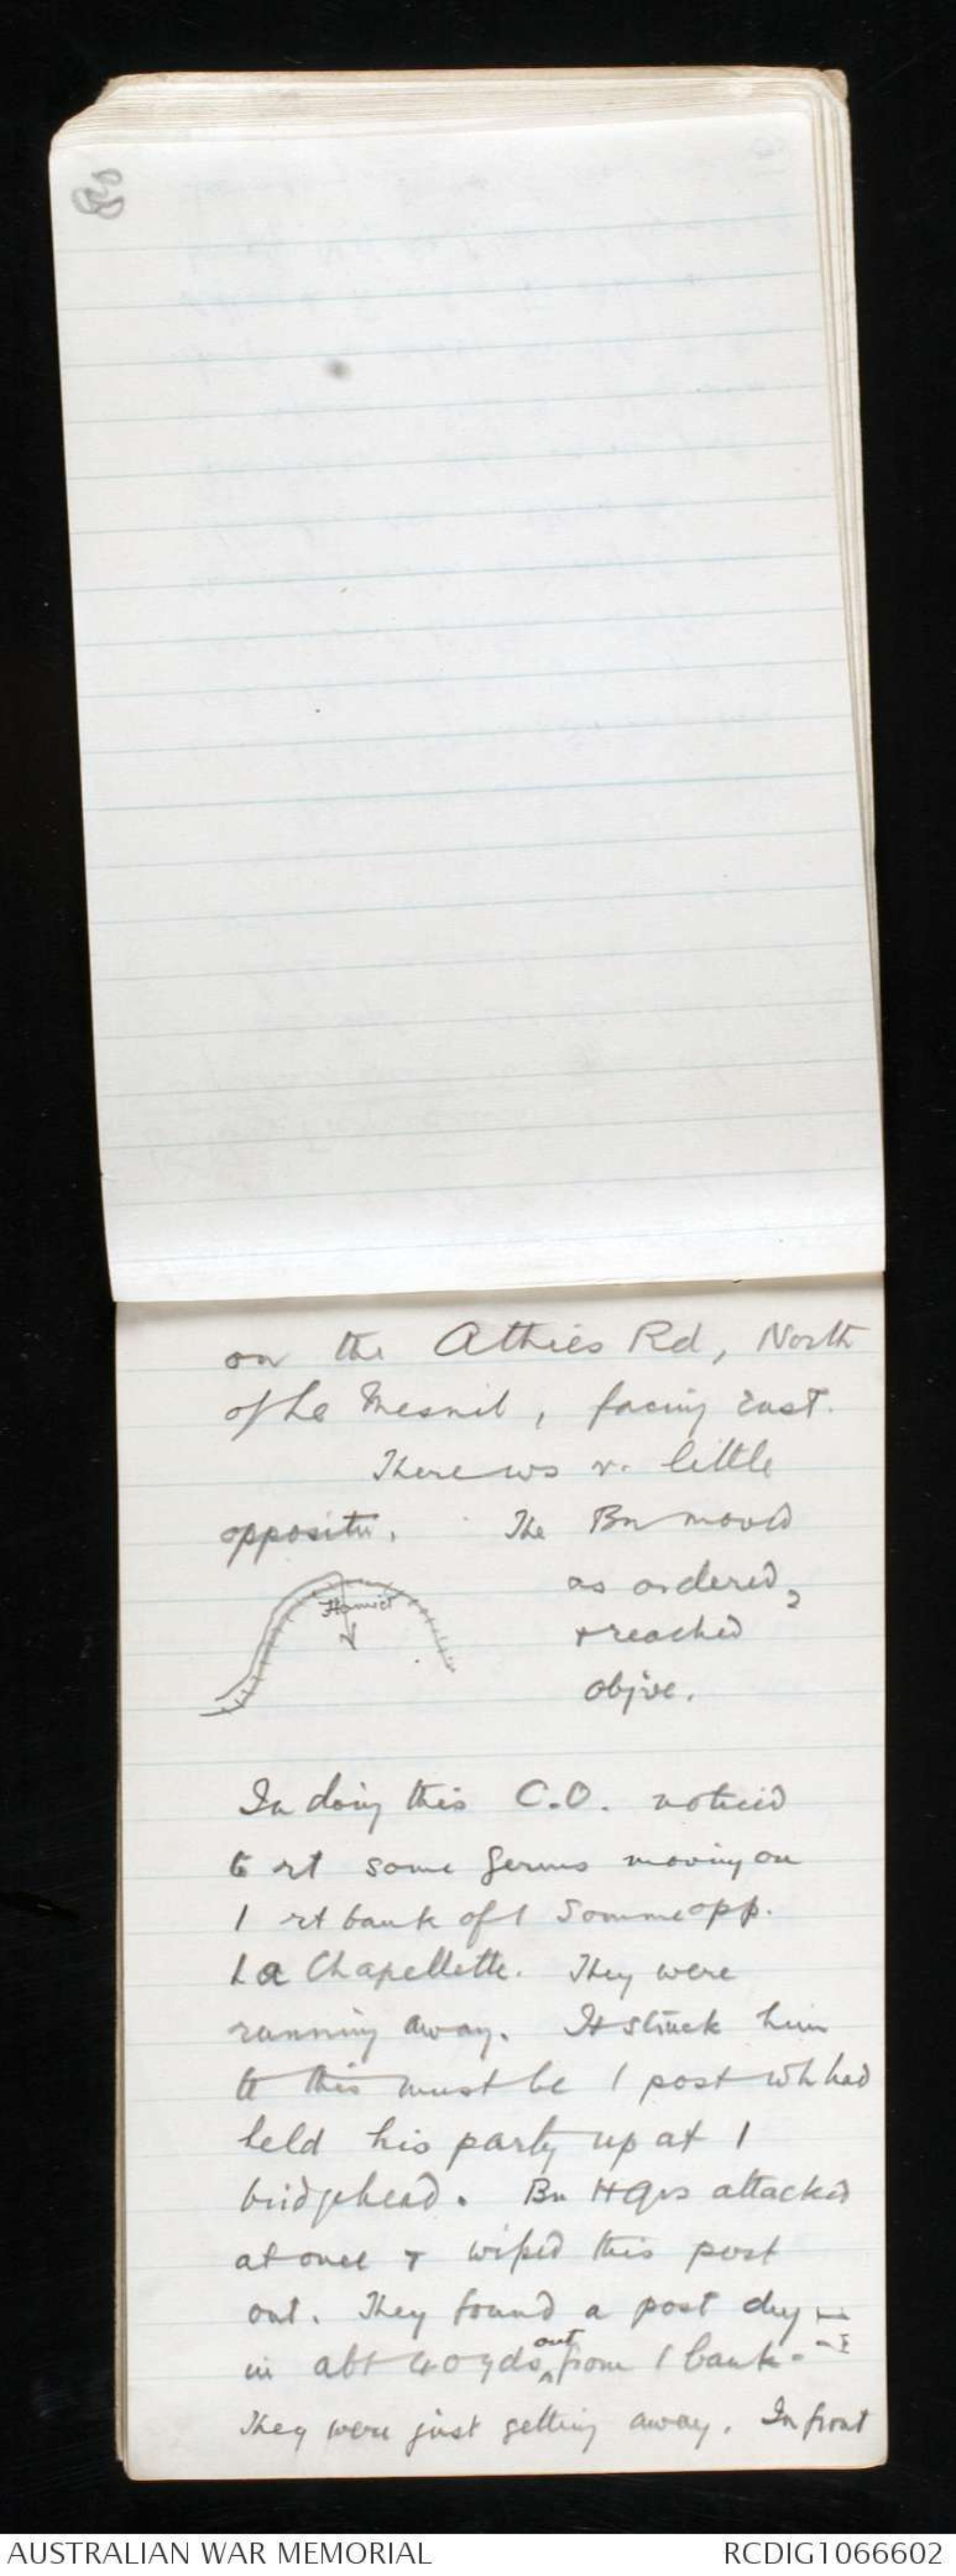 on the Athies Rd, North
of Le Mesnil, facing East.
There ws v. little
oppositn. The Bn moved
as ordered,
+ reached
objve.
Hamlet
In doing this C.O. noticed
to rt some Germs moving on
1 rt bank of 1 Somme opp.
La Chapellette. They were
running away. It struck him
tt this must be 1 post wh had
held his party up at 1
bridgehead. Bn HQrs attacked
at once + wiped this post
out. They found a post dug
in abt 40 yds out from 1 bank.
They were just getting away. In front
AUSTRALIAN WAR MEMORIAL
RCDIG1066602